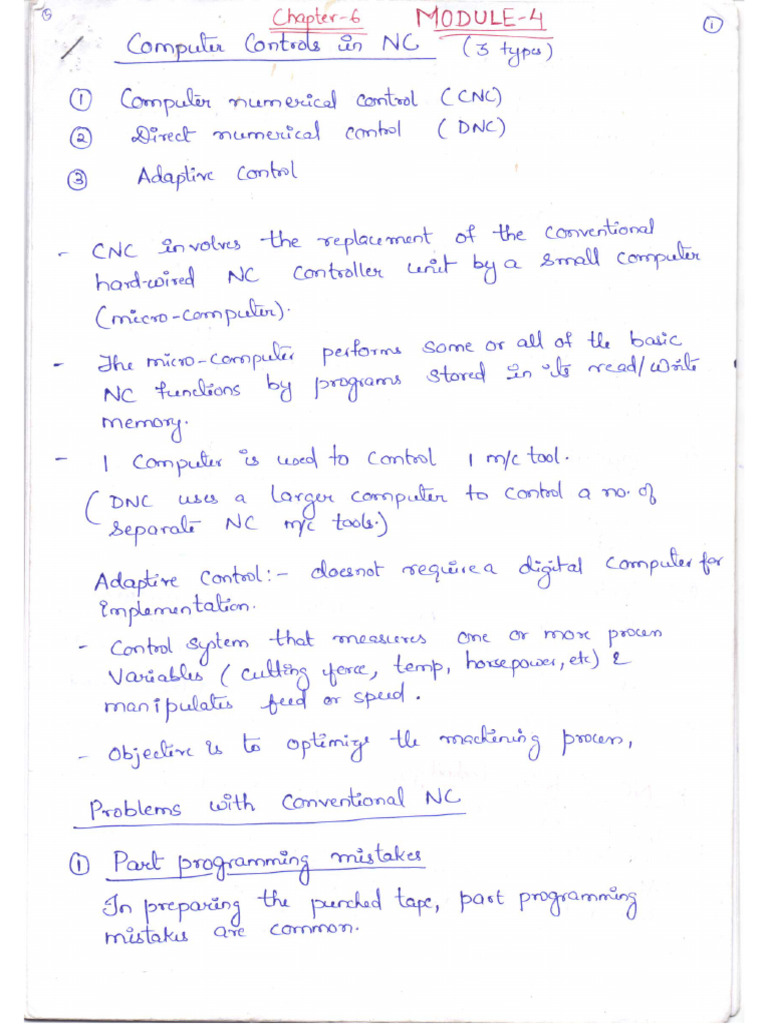 Chapter-6 MODULE-4 ①
Computer Controls in NC (3 types)
① Computer numerical control (CNC)
② Direct numerical control (DNC)
③ Adaptive control
- CNC involves the replacement of the conventional
hard-wired NC controller unit by a small computer
(micro-computer).
- The micro-computer performs some or all of the basic
NC functions by programs stored in its read/write
memory.
- 1 computer is used to control 1 m/c tool.
(DNC uses a larger computer to control a no. of
separate NC m/c tools.)
Adaptive control:- doesnot require a digital computer for
implementation.
- Control system that measures one or more process
variables (cutting force, temp, horsepower, etc) &
manipulates feed or speed.
- Objective is to optimize the machining process,
Problems with conventional NC
① Part programming mistakes
In preparing the punched tape, part programming
mistakes are common.